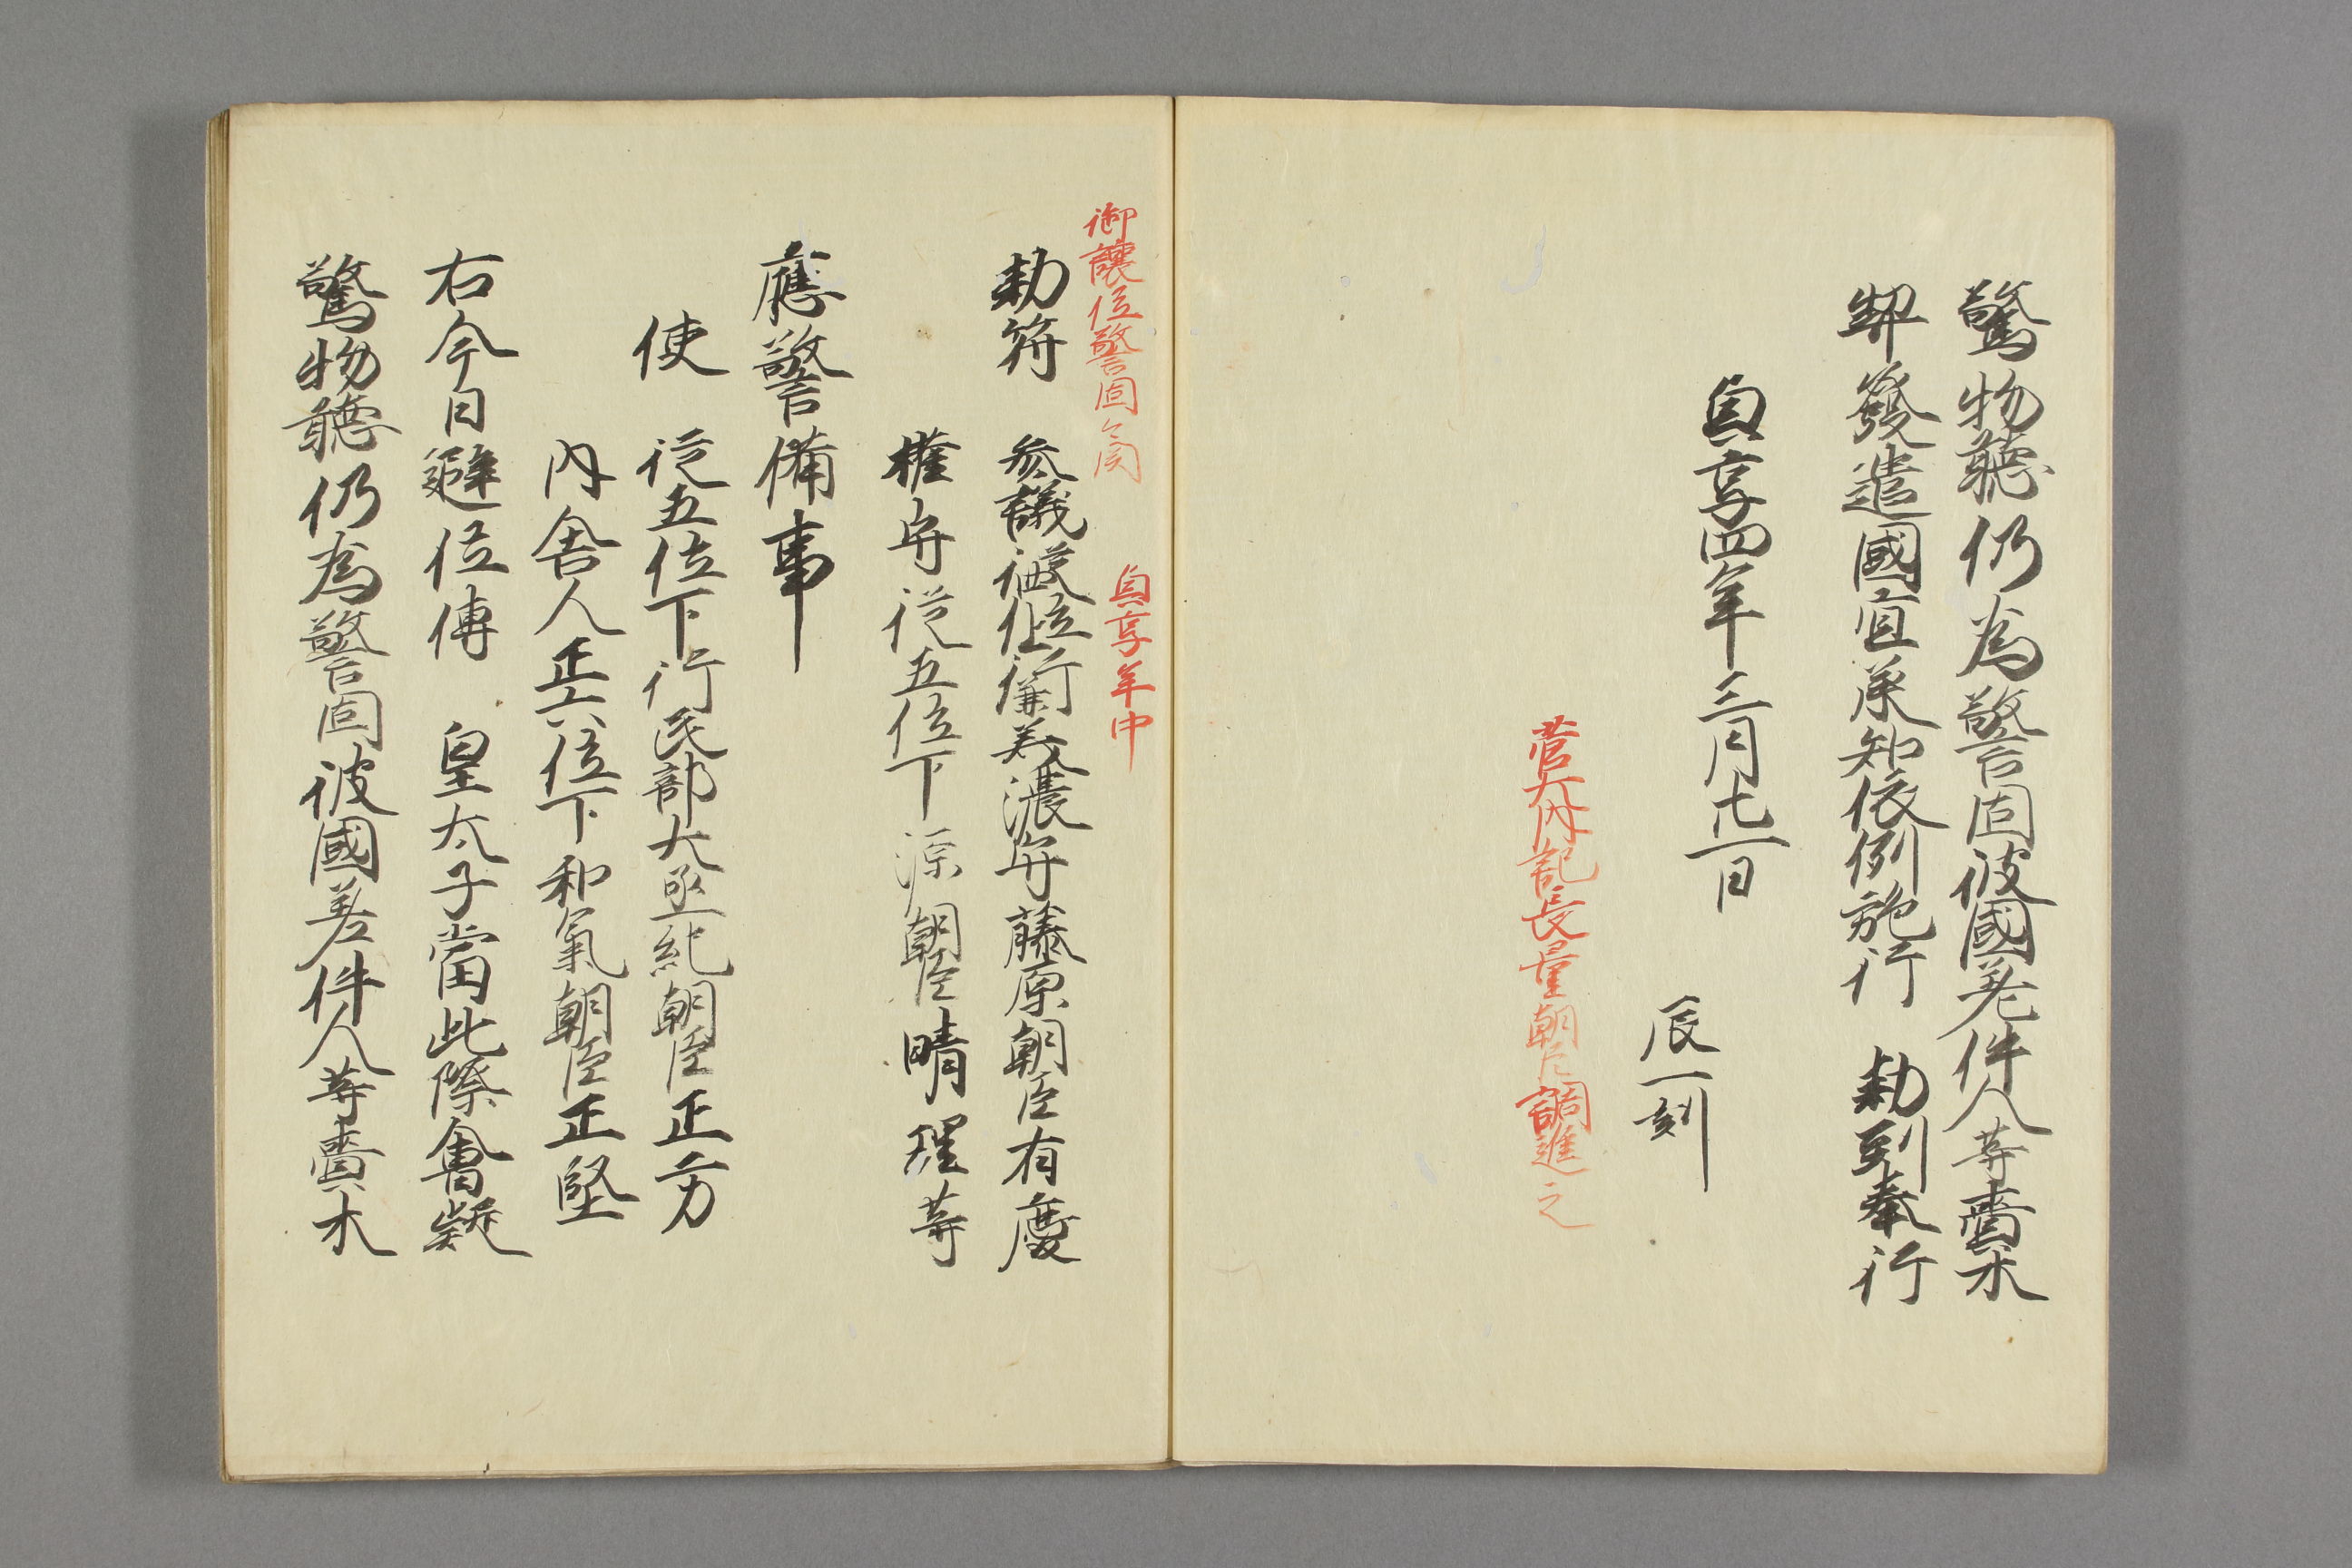 驚物聴仍為警固彼國差件人等賷木
契發遣國宜承知依例施行　勅到奉行
貞享四年三月廿一日
辰一刻
菅大内記長量朝臣調進之
御讓位警固官符　貞享年中
勅符　参議從四位上行兼美濃守藤原朝臣有慶
權守從五位下源朝臣晴理等
應警備事
使　從五位下行民部大丞紀朝臣正方
内舎人正六位下和氣朝臣正堅
右今日避位傳　皇太子當此際會疑
驚物聴仍為警固彼國差件人等賷木